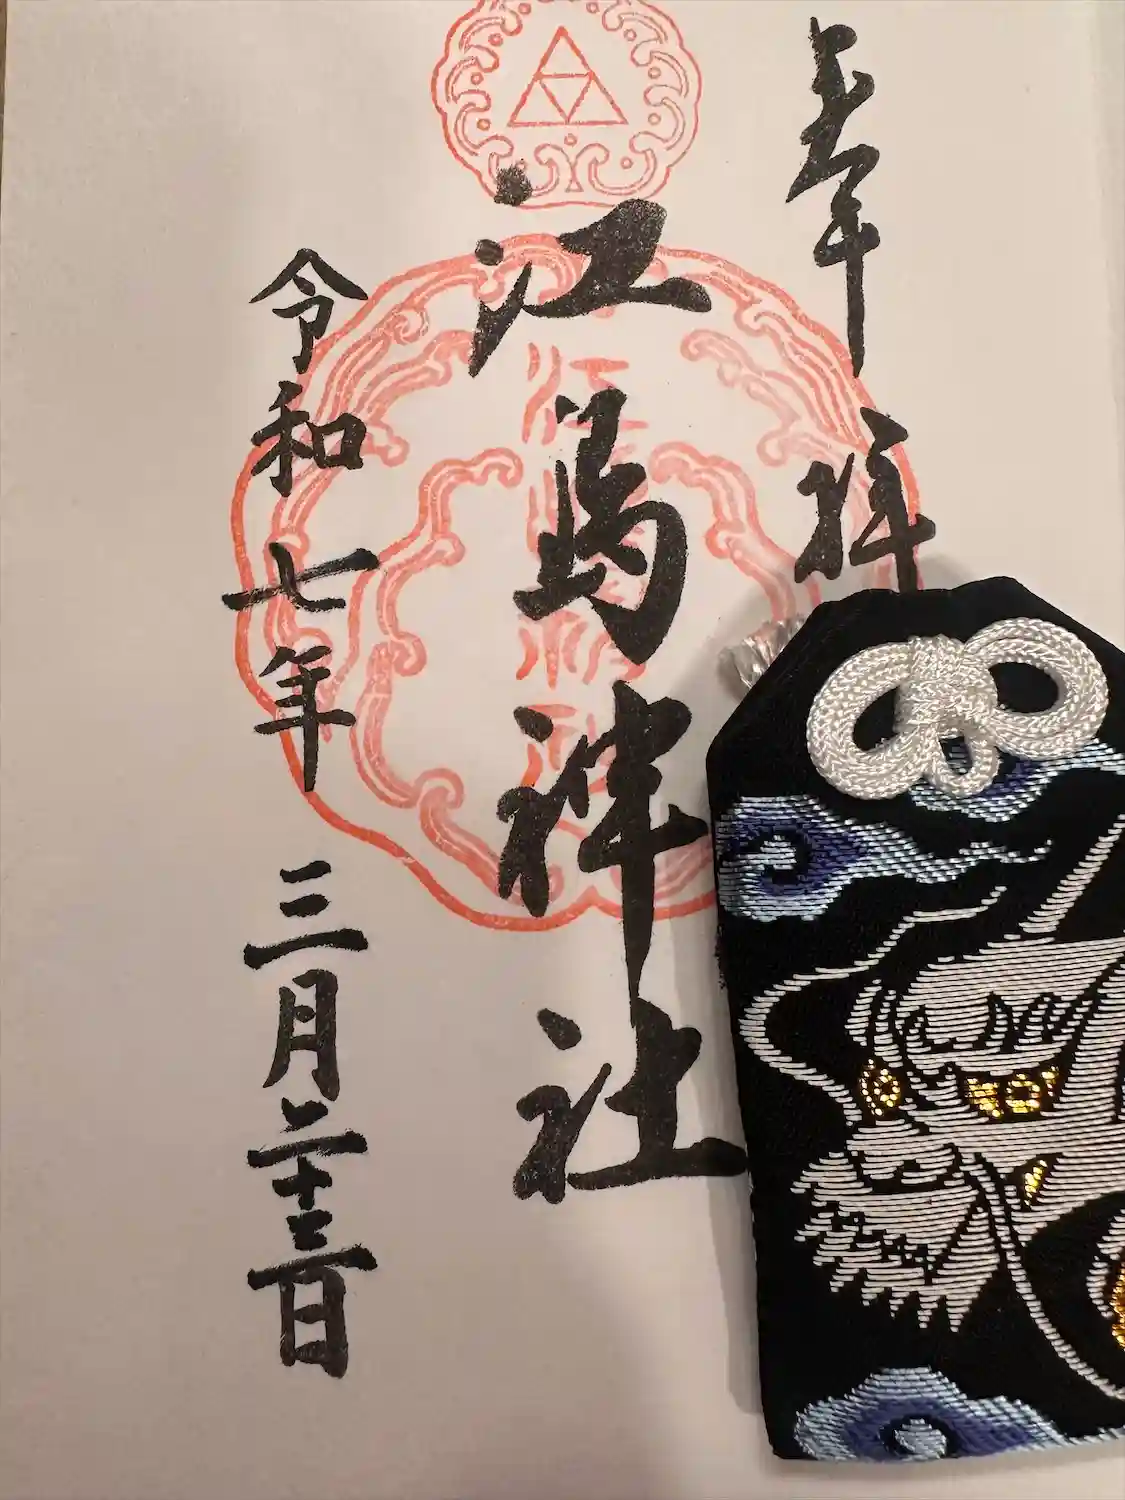 奉拝
江島神社
令和七年三月二十三日